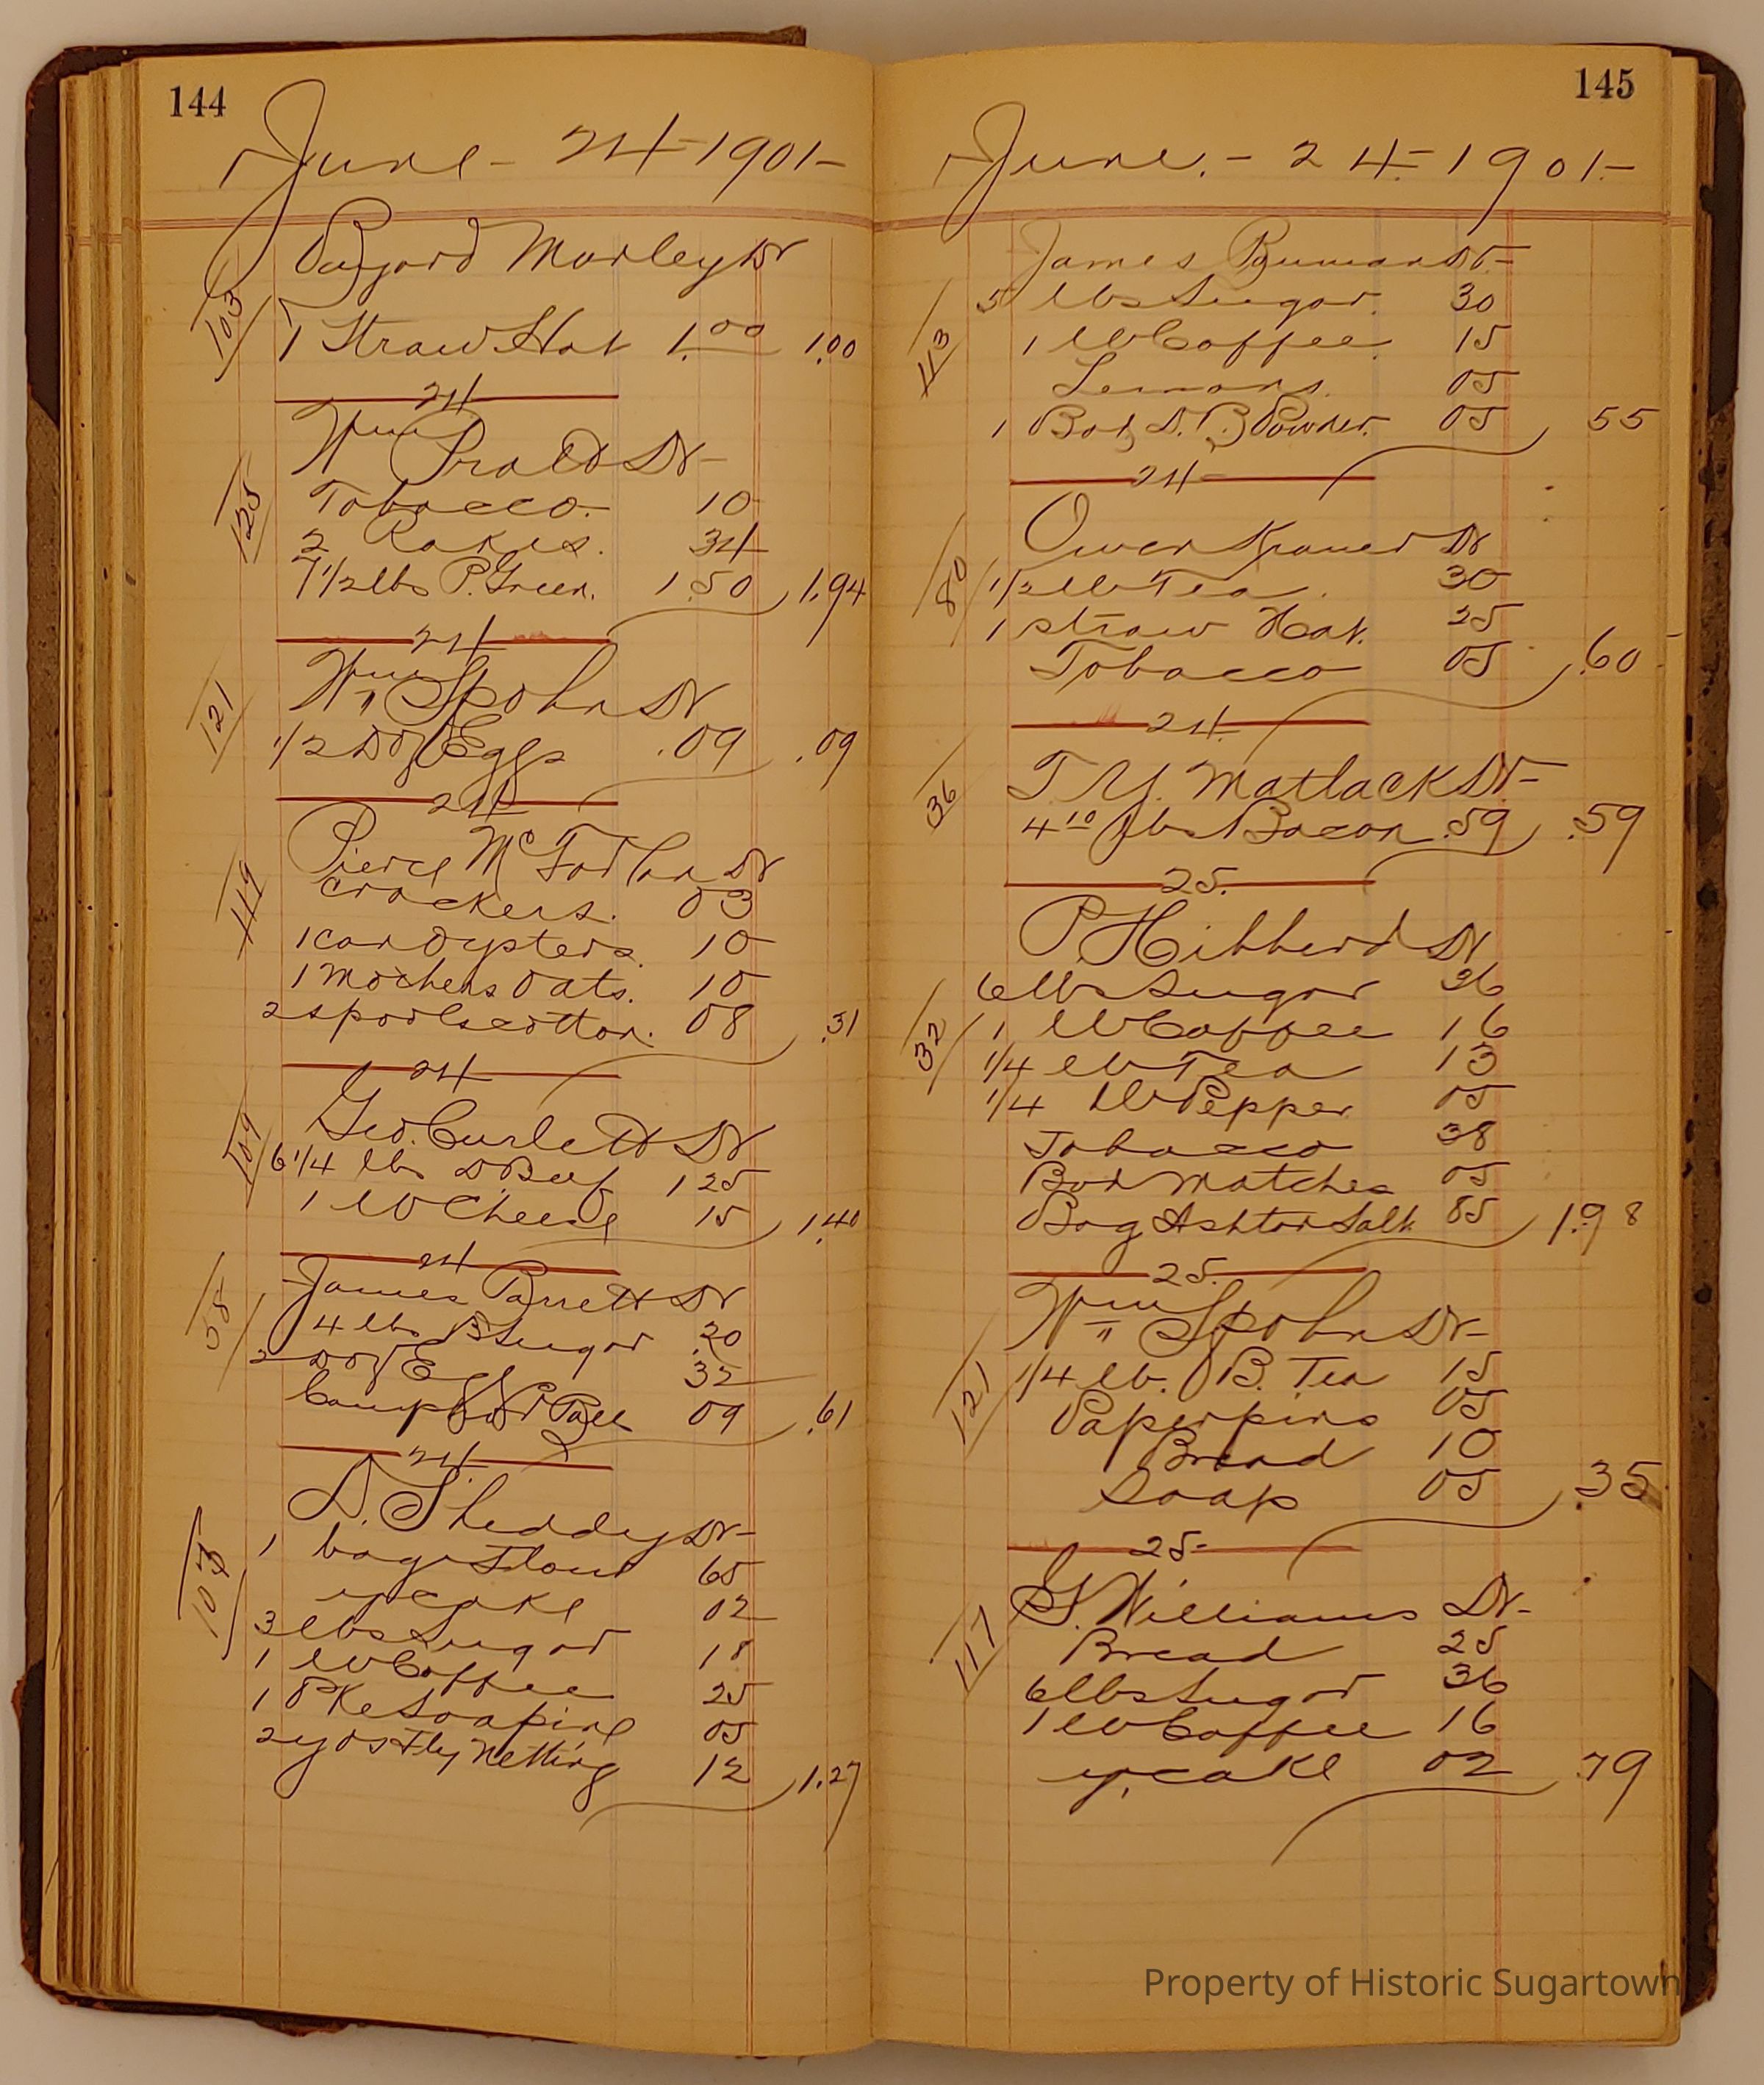 144
June - 24 - 1901 -
Bayard Morley Dr
103
1 Straw Hat 1.00 1.00
24
Wm Dr -
125
Tobacco. 10
2 Rakes. 34
7 1/2 lbs P. Green. 1.50 1.94
24
Wm Spohn Dr
121
1/2 Doz Eggs .09 .09
24
Pierce McFarlan Dr
119
Crackers. 03
1 can Oysters. 10
1 Mothers Oats. 10
2 spools cotton. 08 .31
24
Geo. Curlett Dr
109
6 1/4 lbs D. Beef 1 25
1 lb Cheese 15 1.40
24
James Parrett Dr
58
4 lbs B Sugar .20
2 Doz Eggs 32
09 .61
24
D. Sheddy Dr -
107
1 bag Flour 65
y cake 02
3 lbs Sugar 18
1 lb Coffee 25
1 Pke Soapine 05
2 yds Fly Netting 12 1.27
145
June. - 24. - 1901. -
James Dr -
5 lbs Sugar. 30
113
1 lb Coffee. 15
Lemons. 05
1 Box D. B. Powder. 05 .55
24
Owen Kramer Dr
80
1/2 lb Tea. 30
1 straw Hat. 25
Tobacco 05 .60
24
T. Y. Matlack Dr -
36
4 10 lbs Bacon .59 .59
25.
P. Hibberd Dr
6 lbs Sugar 36
32
1 lb Coffee 16
1/4 lb Tea 13
1/4 lb Pepper 05
Tobacco 38
Box Matches 05
Bag Ashton Salt 85 1.98
25.
Wm Spohn Dr -
121
1/4 lb. B. Tea 15
Paper pins 05
Bread 10
Soap 05 .35
25 -
G. Williams Dr -
117
Bread 25
6 lbs Sugar 36
1 lb Coffee 16
y. cake 02 .79
Property of Historic Sugartown